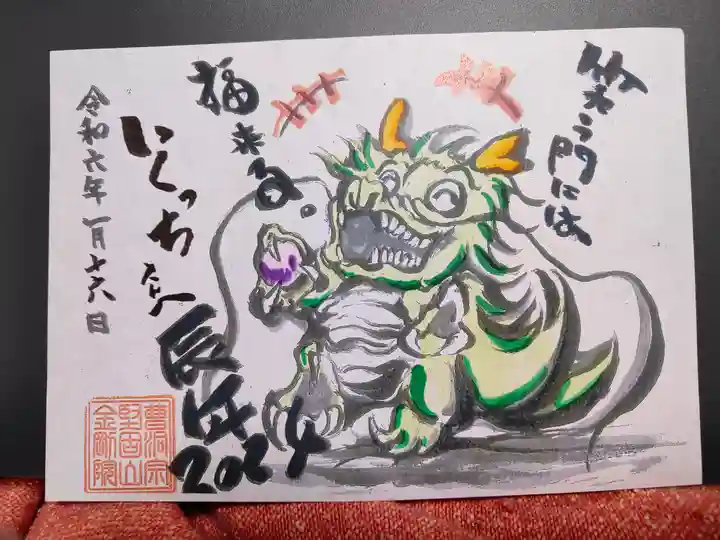 笑う門には
福来る
いくっちたん
辰年
2024
令和六年一月十六日
曹洞宗
堅固山
金剛院